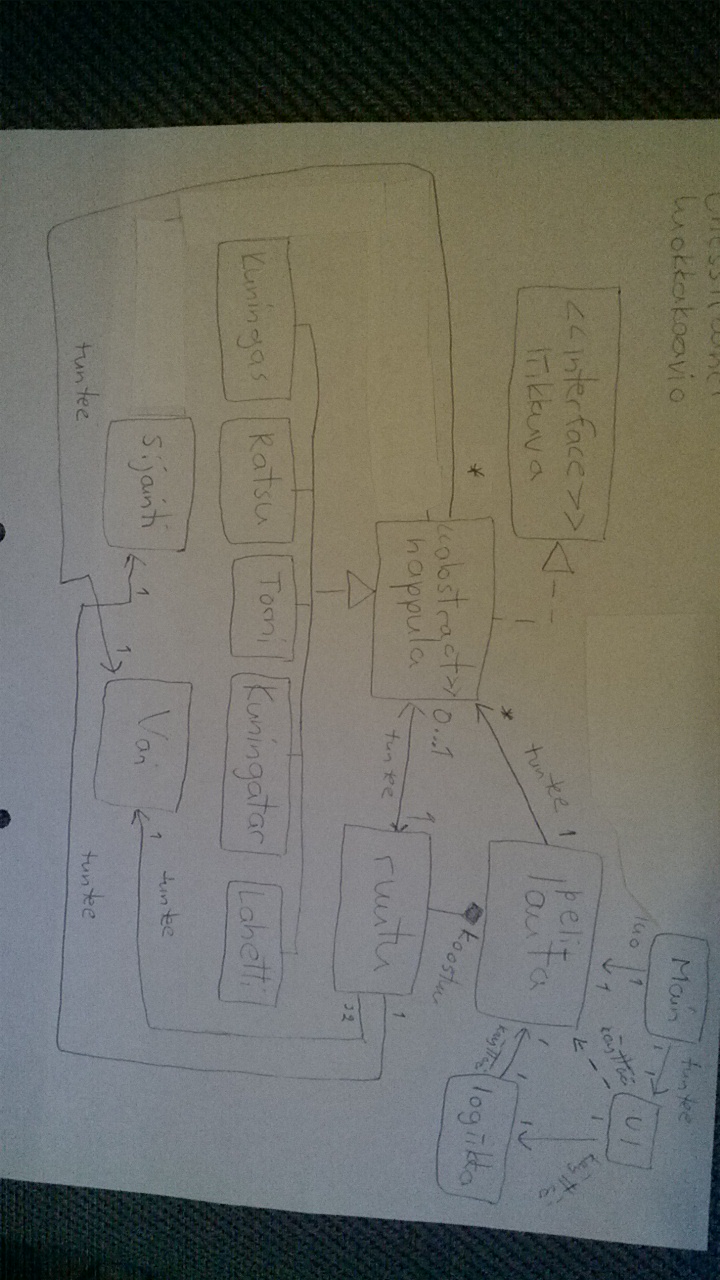 luokkakaavio
Main
tuntee
1
1
UI
luo
1
1
käyttää
1
käyttää
1
<<interface>>
liikkuva
peli-
lauta
tuntee
1
*
1
1
käyttää
logiikka
*
<<abstract>>
nappula
0...1
1
tuntee
koostuu
ruutu
1
32
Kuningas
Ratsu
Torni
Kuningatar
Lähetti
sijainti
1
Väri
1
1
tuntee
tuntee
tuntee